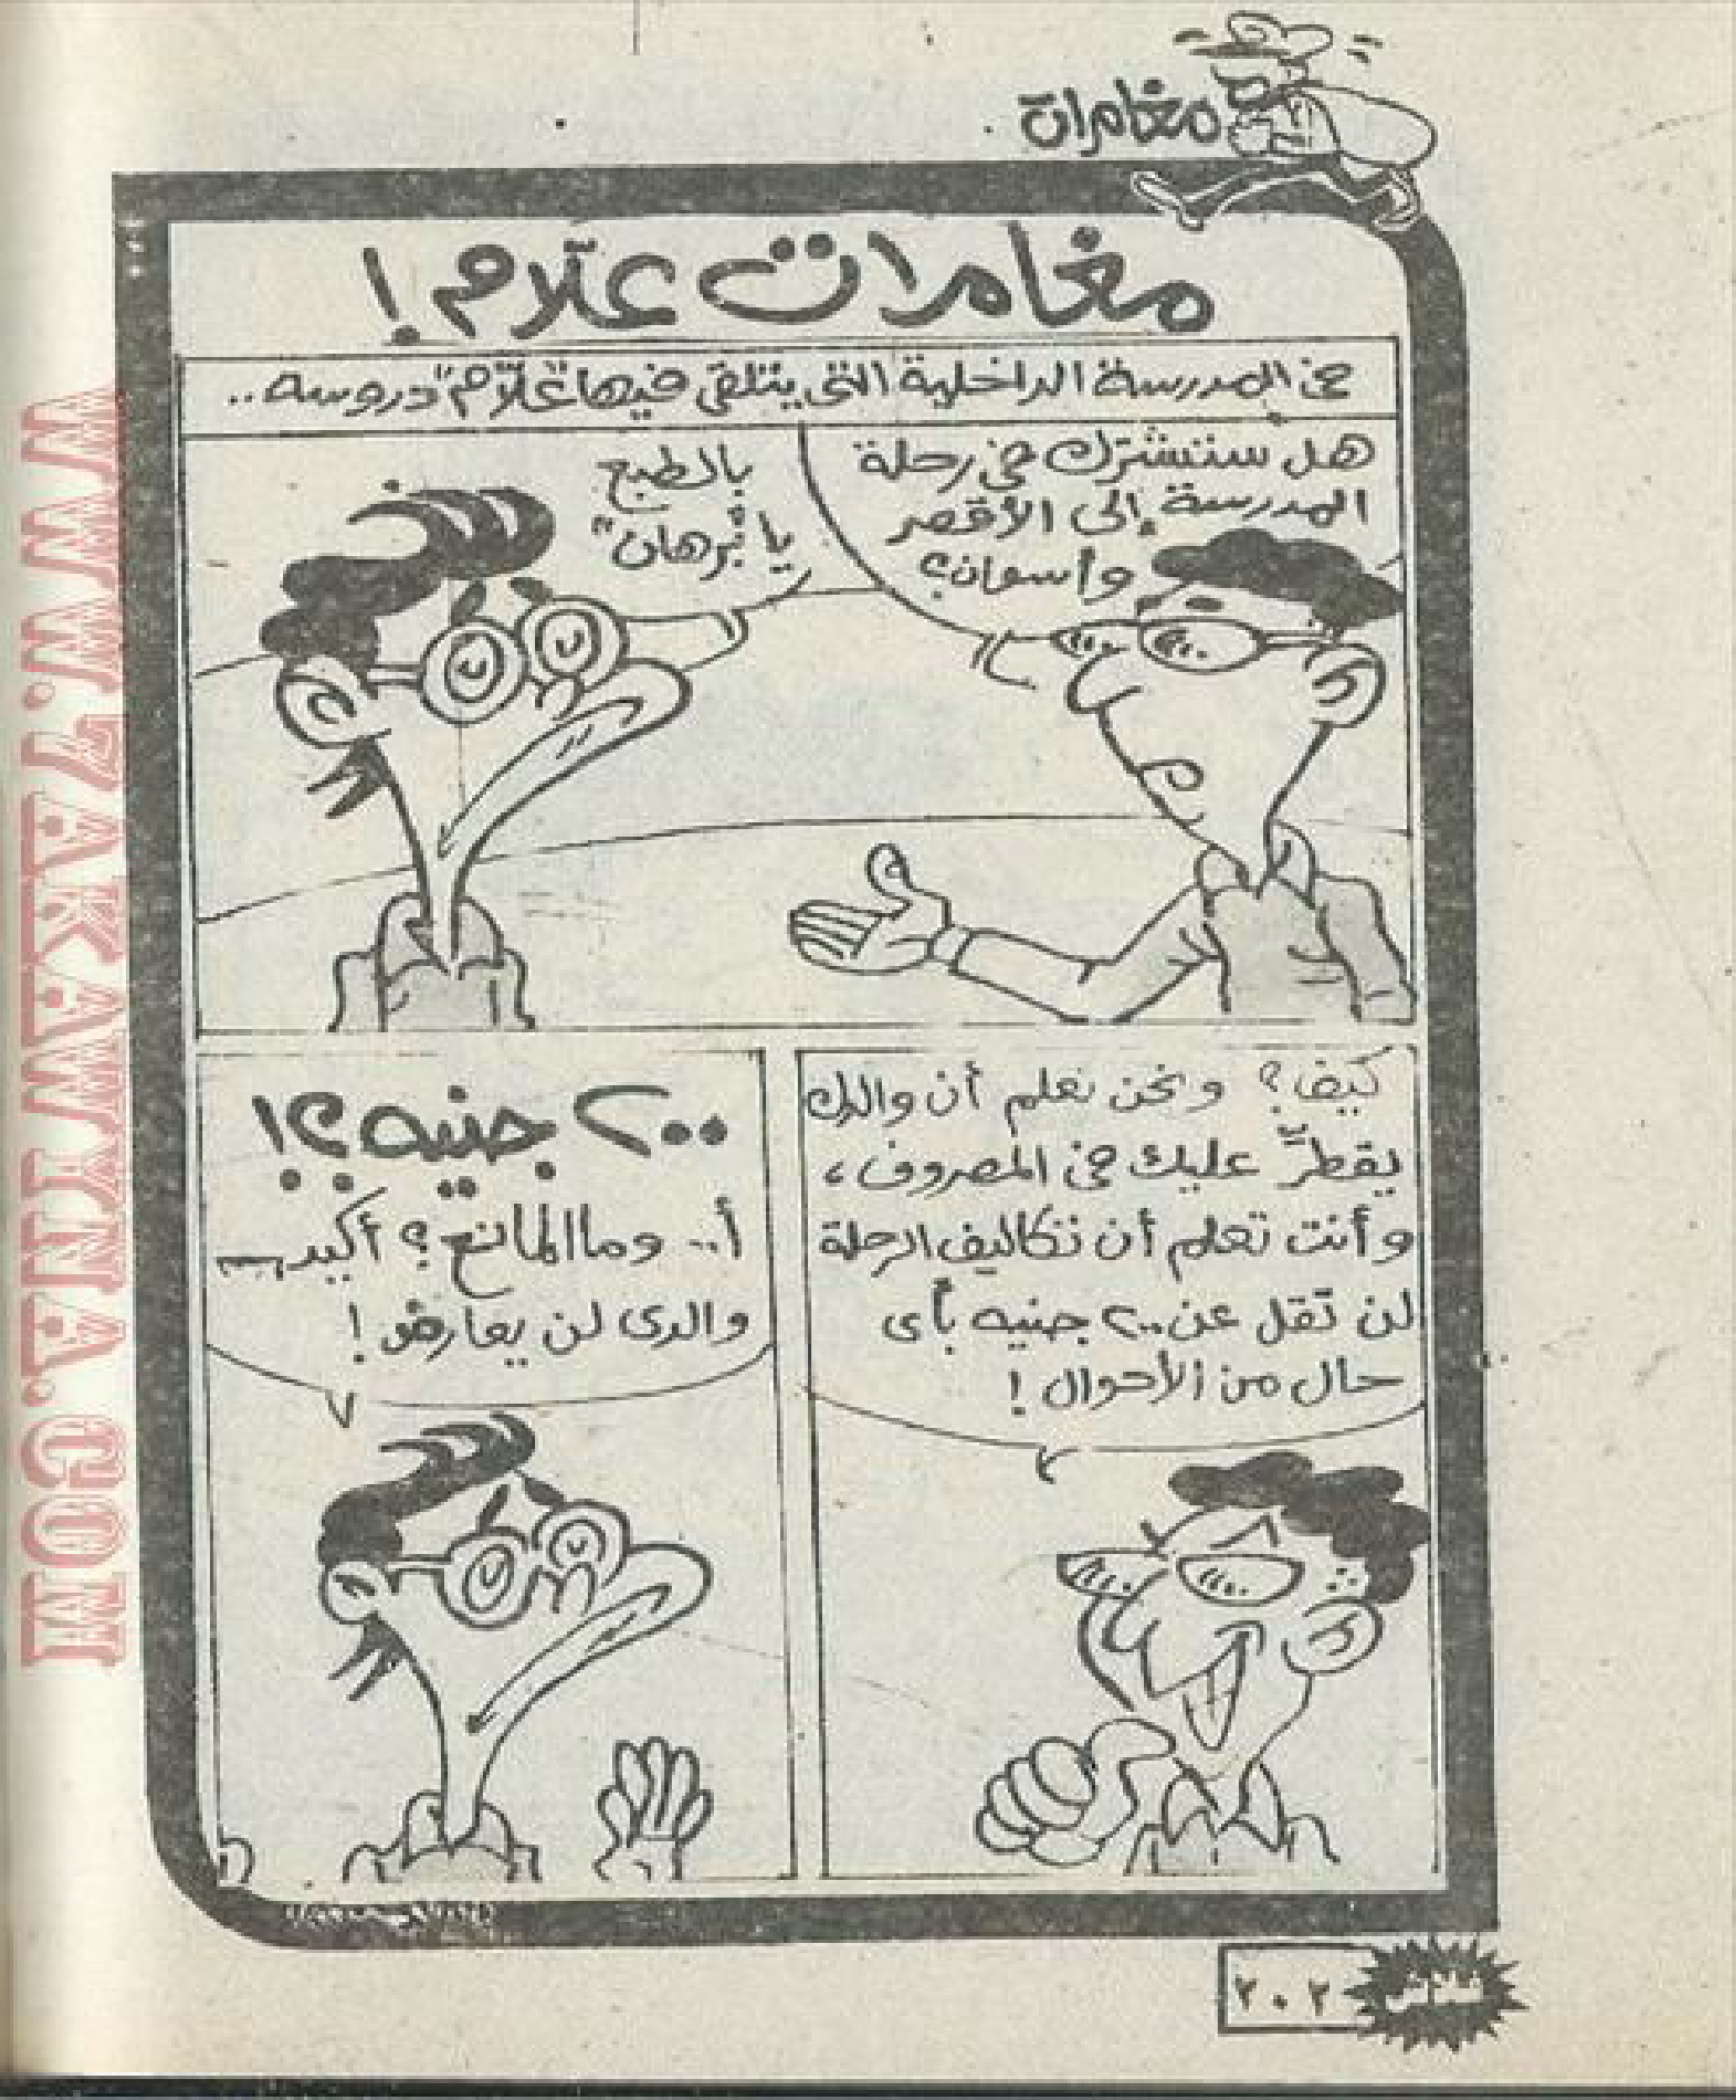 مغامرات
مغامرات علّام !
فى المدرسة الداخلية التى يتلقى فيها "علّام" دروسه ..
هل ستشترك فى رحلة
المدرسة إلى الأقصر
وأسوان؟
بالطبع
يا "برهان"
كيف؟ ونحن نعلم أن والدك
يقطرّ عليك فى المصروف ،
وأنت تعلم أن تكاليف الرحلة
لن تقل عن ٢٠٠ جنيه بأى
حال من الأحوال !
٢٠٠ جنيه ؟!!
أ.. وما المانع ؟ أكيد
والدى لن يعارض !
٢٠٢
WWW.7AKAWYNA.COM